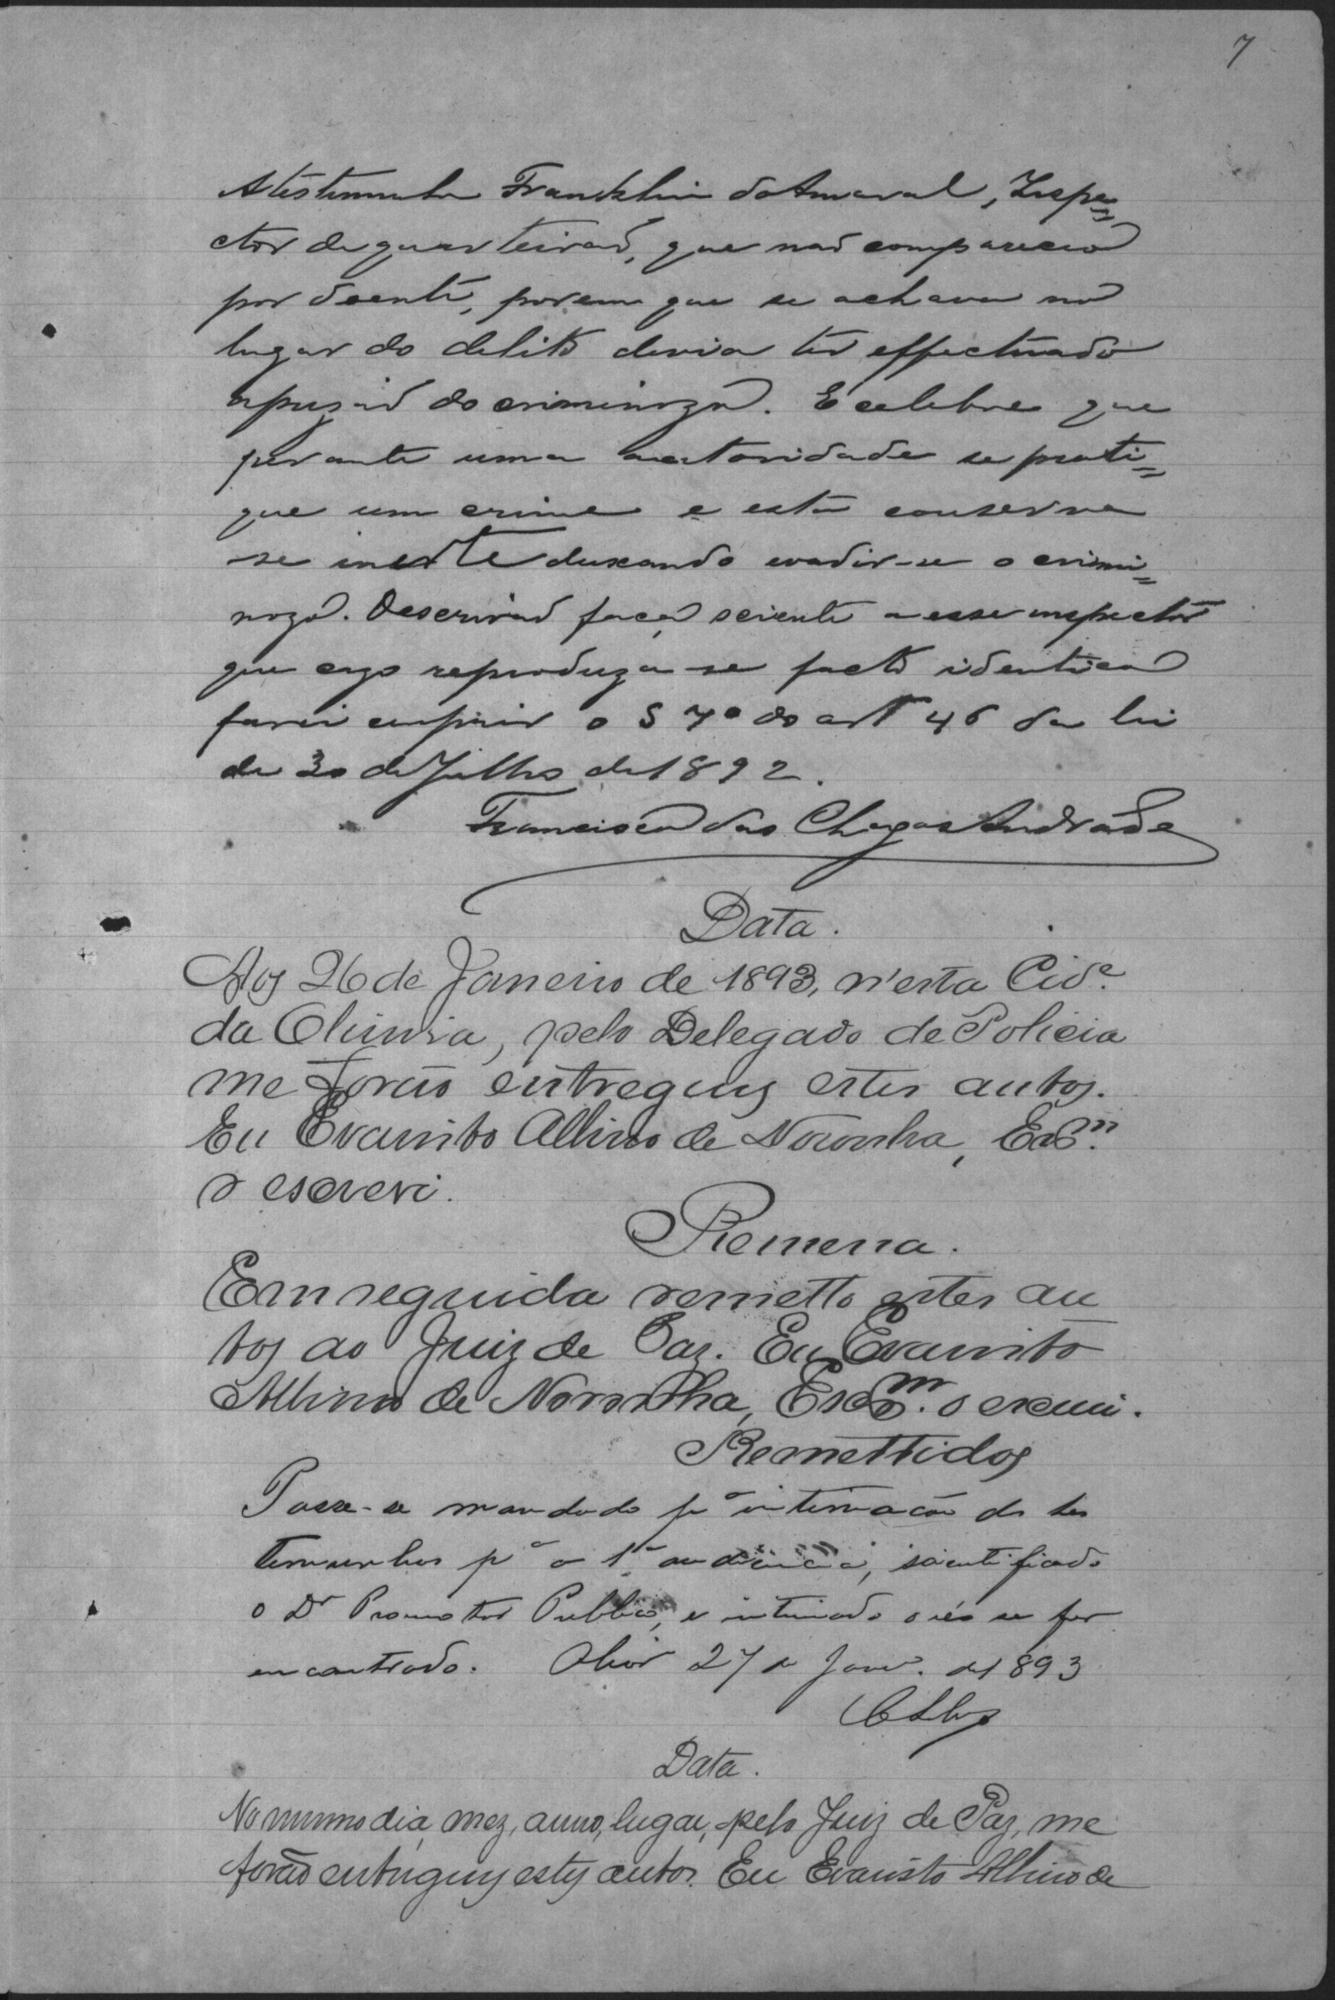 7
A testemunha Franklin do Amaral, Inspe=
ctor de quarteirão, que não compareceo
por doente, porem que se achava no
lugar do delito devia ter effectuado
a prizão do criminozo. É celebre que
perante uma autoridade se prati=
que um crime e esta conserve
-se inerte deixando evadir-se o crimi=
nozo. O escrivão faça sciente a esse inspector
que cazo reproduza-se facto identico
farei cumprir o § 7º do art 46 da lei
de 30 de Julho de 1892.
Francisco das Chagas Andrade
Data.
Aos 26 de Janeiro de 1893, n'esta Cid.e
da , pelo Delegado de Policia
me forão entregues estes autos.
Eu Evaristo Albino de Noronha, Escr.m
o escrevi.
Remessa.
Em seguida remetto estes au
tos ao Juiz de Paz. Eu Evaristo
Albino de Noronha, Escr.m o escrevi.
Remettidos
Passe-se mandado pª intimação das tes
temunhas pª a 1ª audiencia, scientificado
o Dr Promotor Publico, e intimado o réo se for
encontrado. 27 de Janrº. de 1893
Data.
No mesmo dia, mez, anno, lugar, pelo Juiz de Paz, me
forão entregues estes autos. Eu Evaristo Albino de